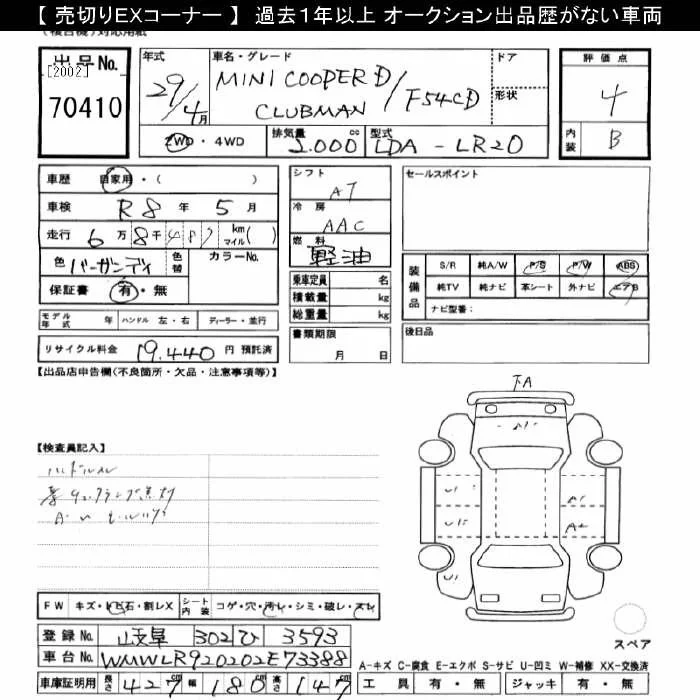 【 売切りEXコーナー 】 過去１年以上 オークション出品歴がない車両
出品No.
[2002]
70410
年式
29/4月
車名・グレード
MINI COOPER D
CLUBMAN / F54CD
ドア
形状
評価点
4
内装
B
2WD・4WD
排気量
2.000 cc
型式
LDA - LR20
車歴 自家用・( )
車検 R8年 5月
走行 6万8千487 km マイル( )
色 バーガンディ 色替 カラーNo.
保証書 有・無
シフト
AT
冷房
AAC
燃料
軽油
乗車定員 名
積載量 kg
総重量 kg
書類期限
月 日
セールスポイント
装備品
S/R 純A/W P/S P/W ABS
純TV 純ナビ 革シート 外ナビ エアB
ナビ型番:
後日品
モデル年式 年 ハンドル 左・右 ディーラー・並行
リサイクル料金 19.440 円 預託済
【出品店申告欄(不良箇所・欠品・注意事項等)】
下A
【検査員記入】
U1
A1
A2
U1
FW キズ・トビ石・割レX シート内装 コゲ・穴・汚レ・シミ・破レ・スレ
登録No. 岐阜 302 ひ 3593
車台No. WMWLR920202E73388
車庫証明用 長さ 427cm 幅 180cm 高さ 147cm
スペア
A-キズ C-腐食 E-エクボ S-サビ U-凹ミ W-補修 XX-交換済
工具 有・無 ジャッキ 有・無